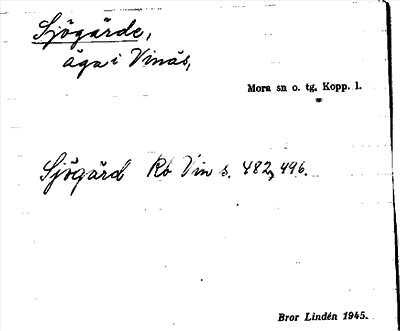 Sjögärde,
äga i Vinäs,
Mora sn o. tg, Kopp. l.
Sjögärd Rb Vin s. 482, 496.
Bror Lindén 1945.